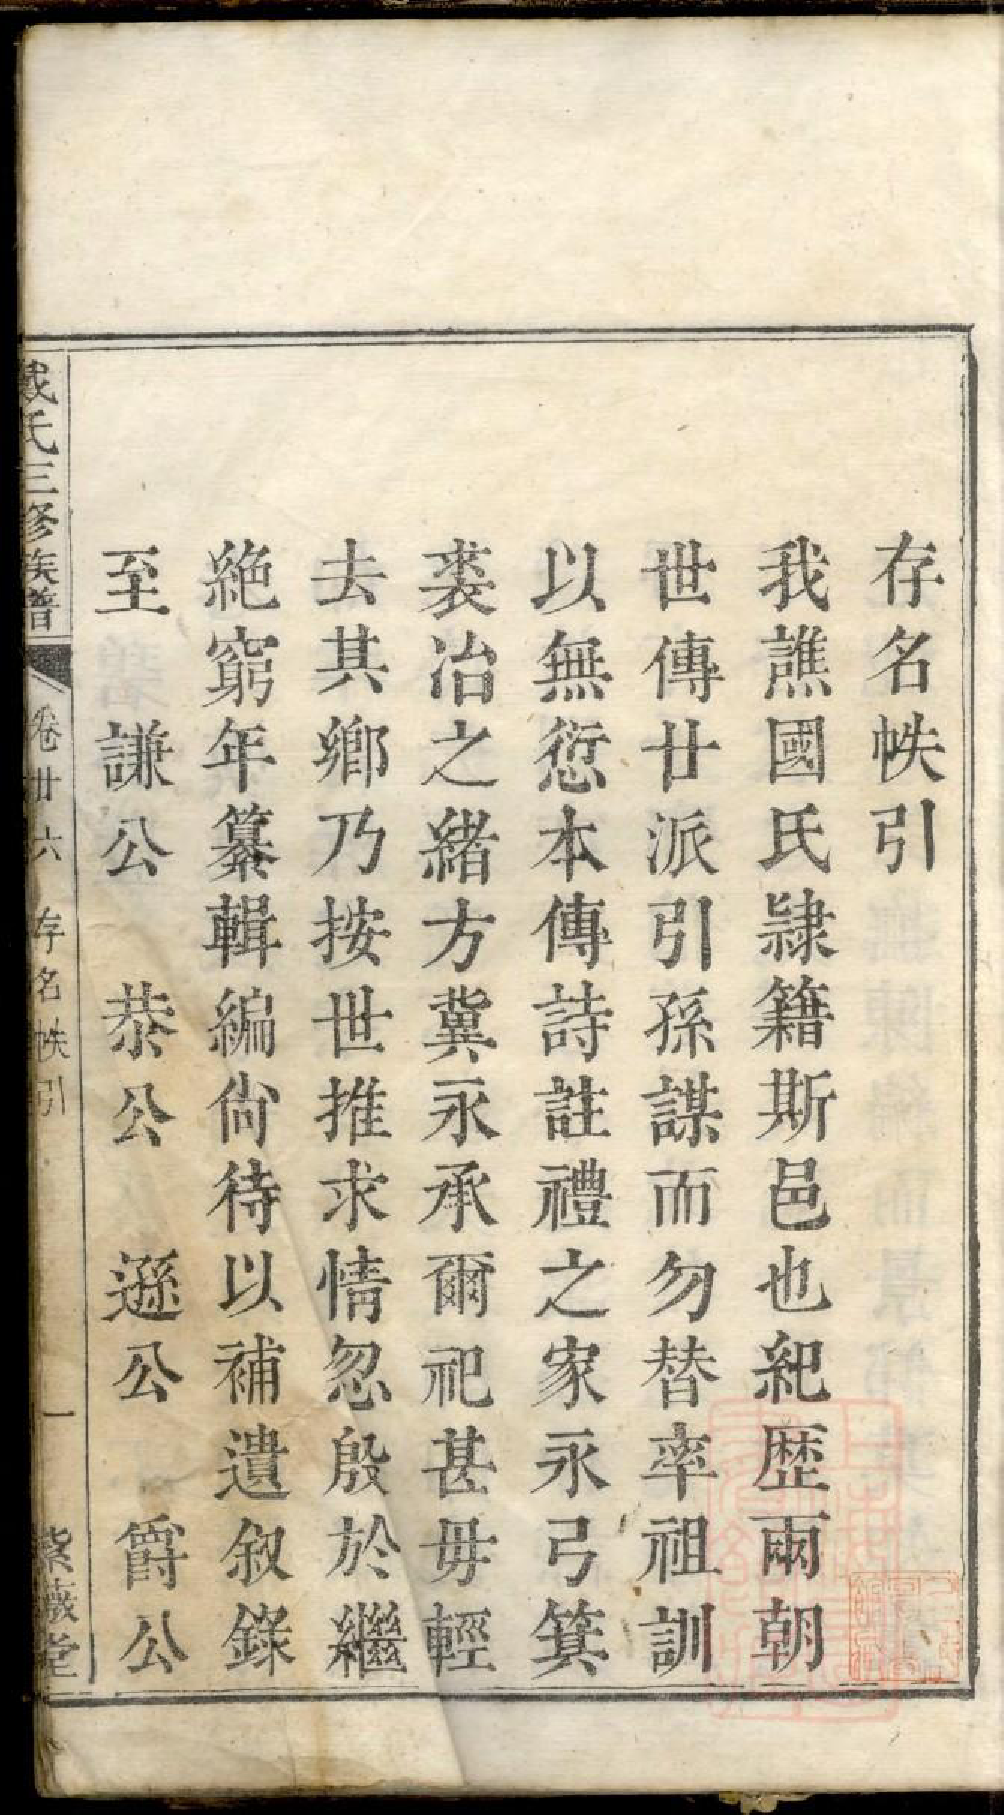 存名帙引
我譙國氏隷籍斯邑也紀歴兩朝
世傳廿派引孫謀而勿替率祖訓
以無愆本傳詩註禮之家永弓箕
裘冶之緒方冀永承爾祀甚毋輕
去其鄉乃按世推求情忽殷於繼
絶窮年纂輯編尙待以補遺叙錄
至　謙公　恭公　遜公　爵公
戴氏三修族譜　卷廿六　存名帙引　一　紫薇堂